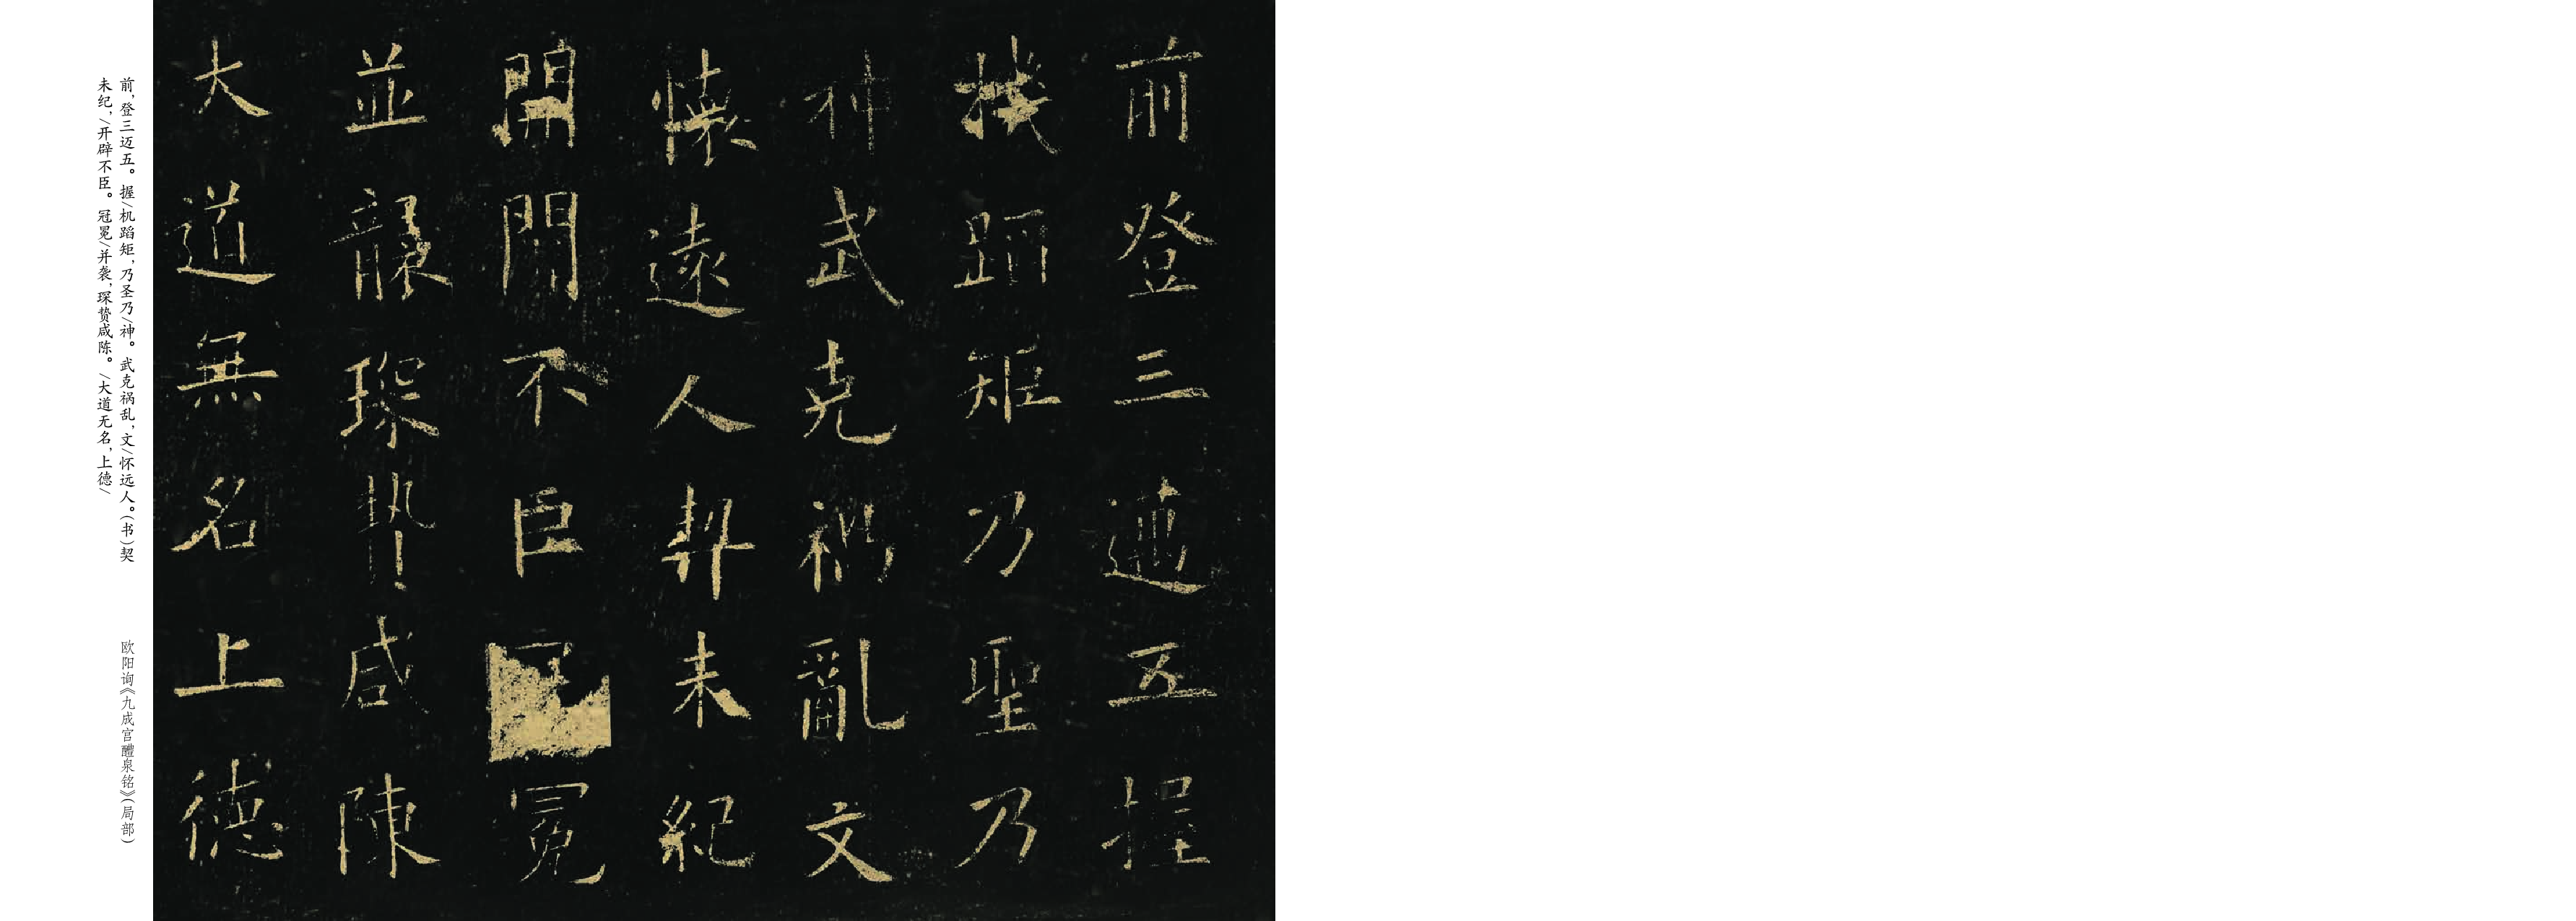 前登三邁五握
機蹈矩乃聖乃
神武克禍亂文
懷遠人契未紀
開闢不臣冠冕
並襲琛贄咸陳
大道無名上德
前，登三迈五。握/机蹈矩，乃圣乃/神。武克祸乱，文/怀远人。（书）契
未纪，/开辟不臣。冠冕/并袭，琛贽咸陈。/大道无名，上德/
欧阳询《九成宫醴泉铭》（局部）